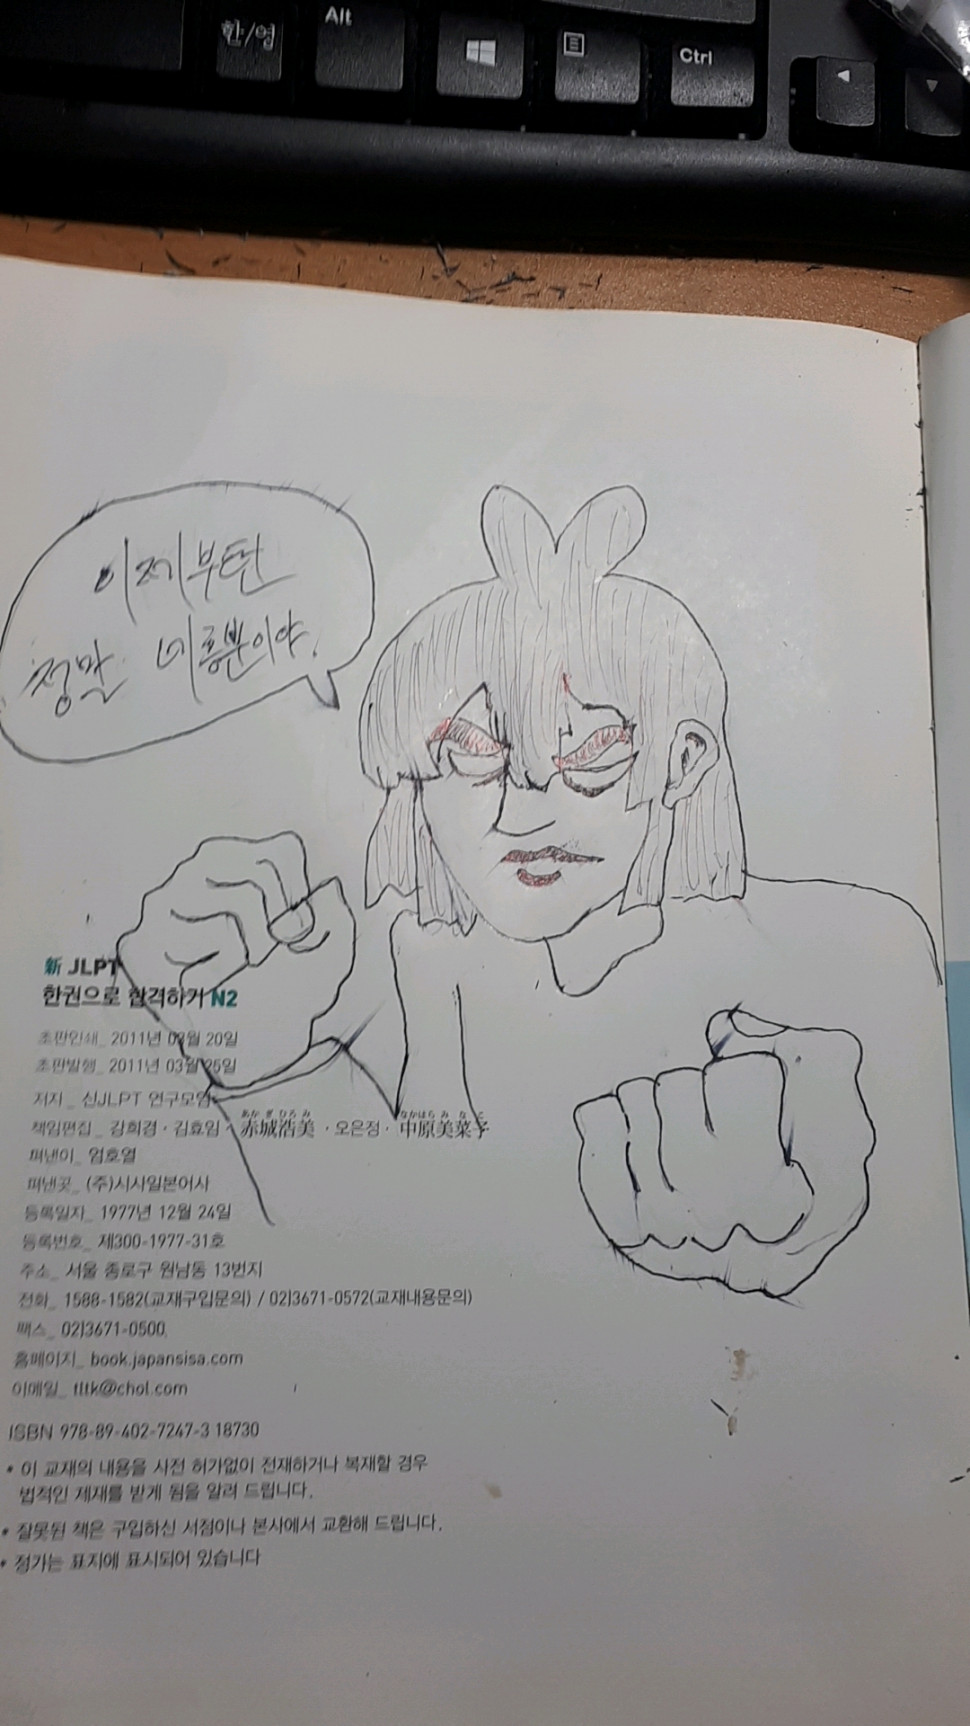 한/영
Alt
Ctrl
이제부턴
정말 네흥분이야.
新 JLPT
한권으로 합격하기 N2
초판인쇄_ 2011년 03월 20일
초판발행_ 2011년 03월 25일
저자_ 신JLPT 연구모임
책임편집_ 김희경 · 김효임 · 赤城浩美 · 오은정 · 中原美菜子
펴낸이_ 엄호열
펴낸곳_ (주)시사일본어사
등록일자_ 1977년 12월 24일
등록번호_ 제300-1977-31호
주소_ 서울 종로구 원남동 13번지
전화_ 1588-1582(교재구입문의) / 02)3671-0572(교재내용문의)
팩스_ 02)3671-0500
홈페이지_ book.japansisa.com
이메일_ tltk@chol.com
ISBN 978-89-402-7247-3 18730
* 이 교재의 내용을 사전 허가없이 전재하거나 복제할 경우
법적인 제재를 받게 됨을 알려 드립니다.
* 잘못된 책은 구입하신 서점이나 본사에서 교환해 드립니다.
* 정가는 표지에 표시되어 있습니다